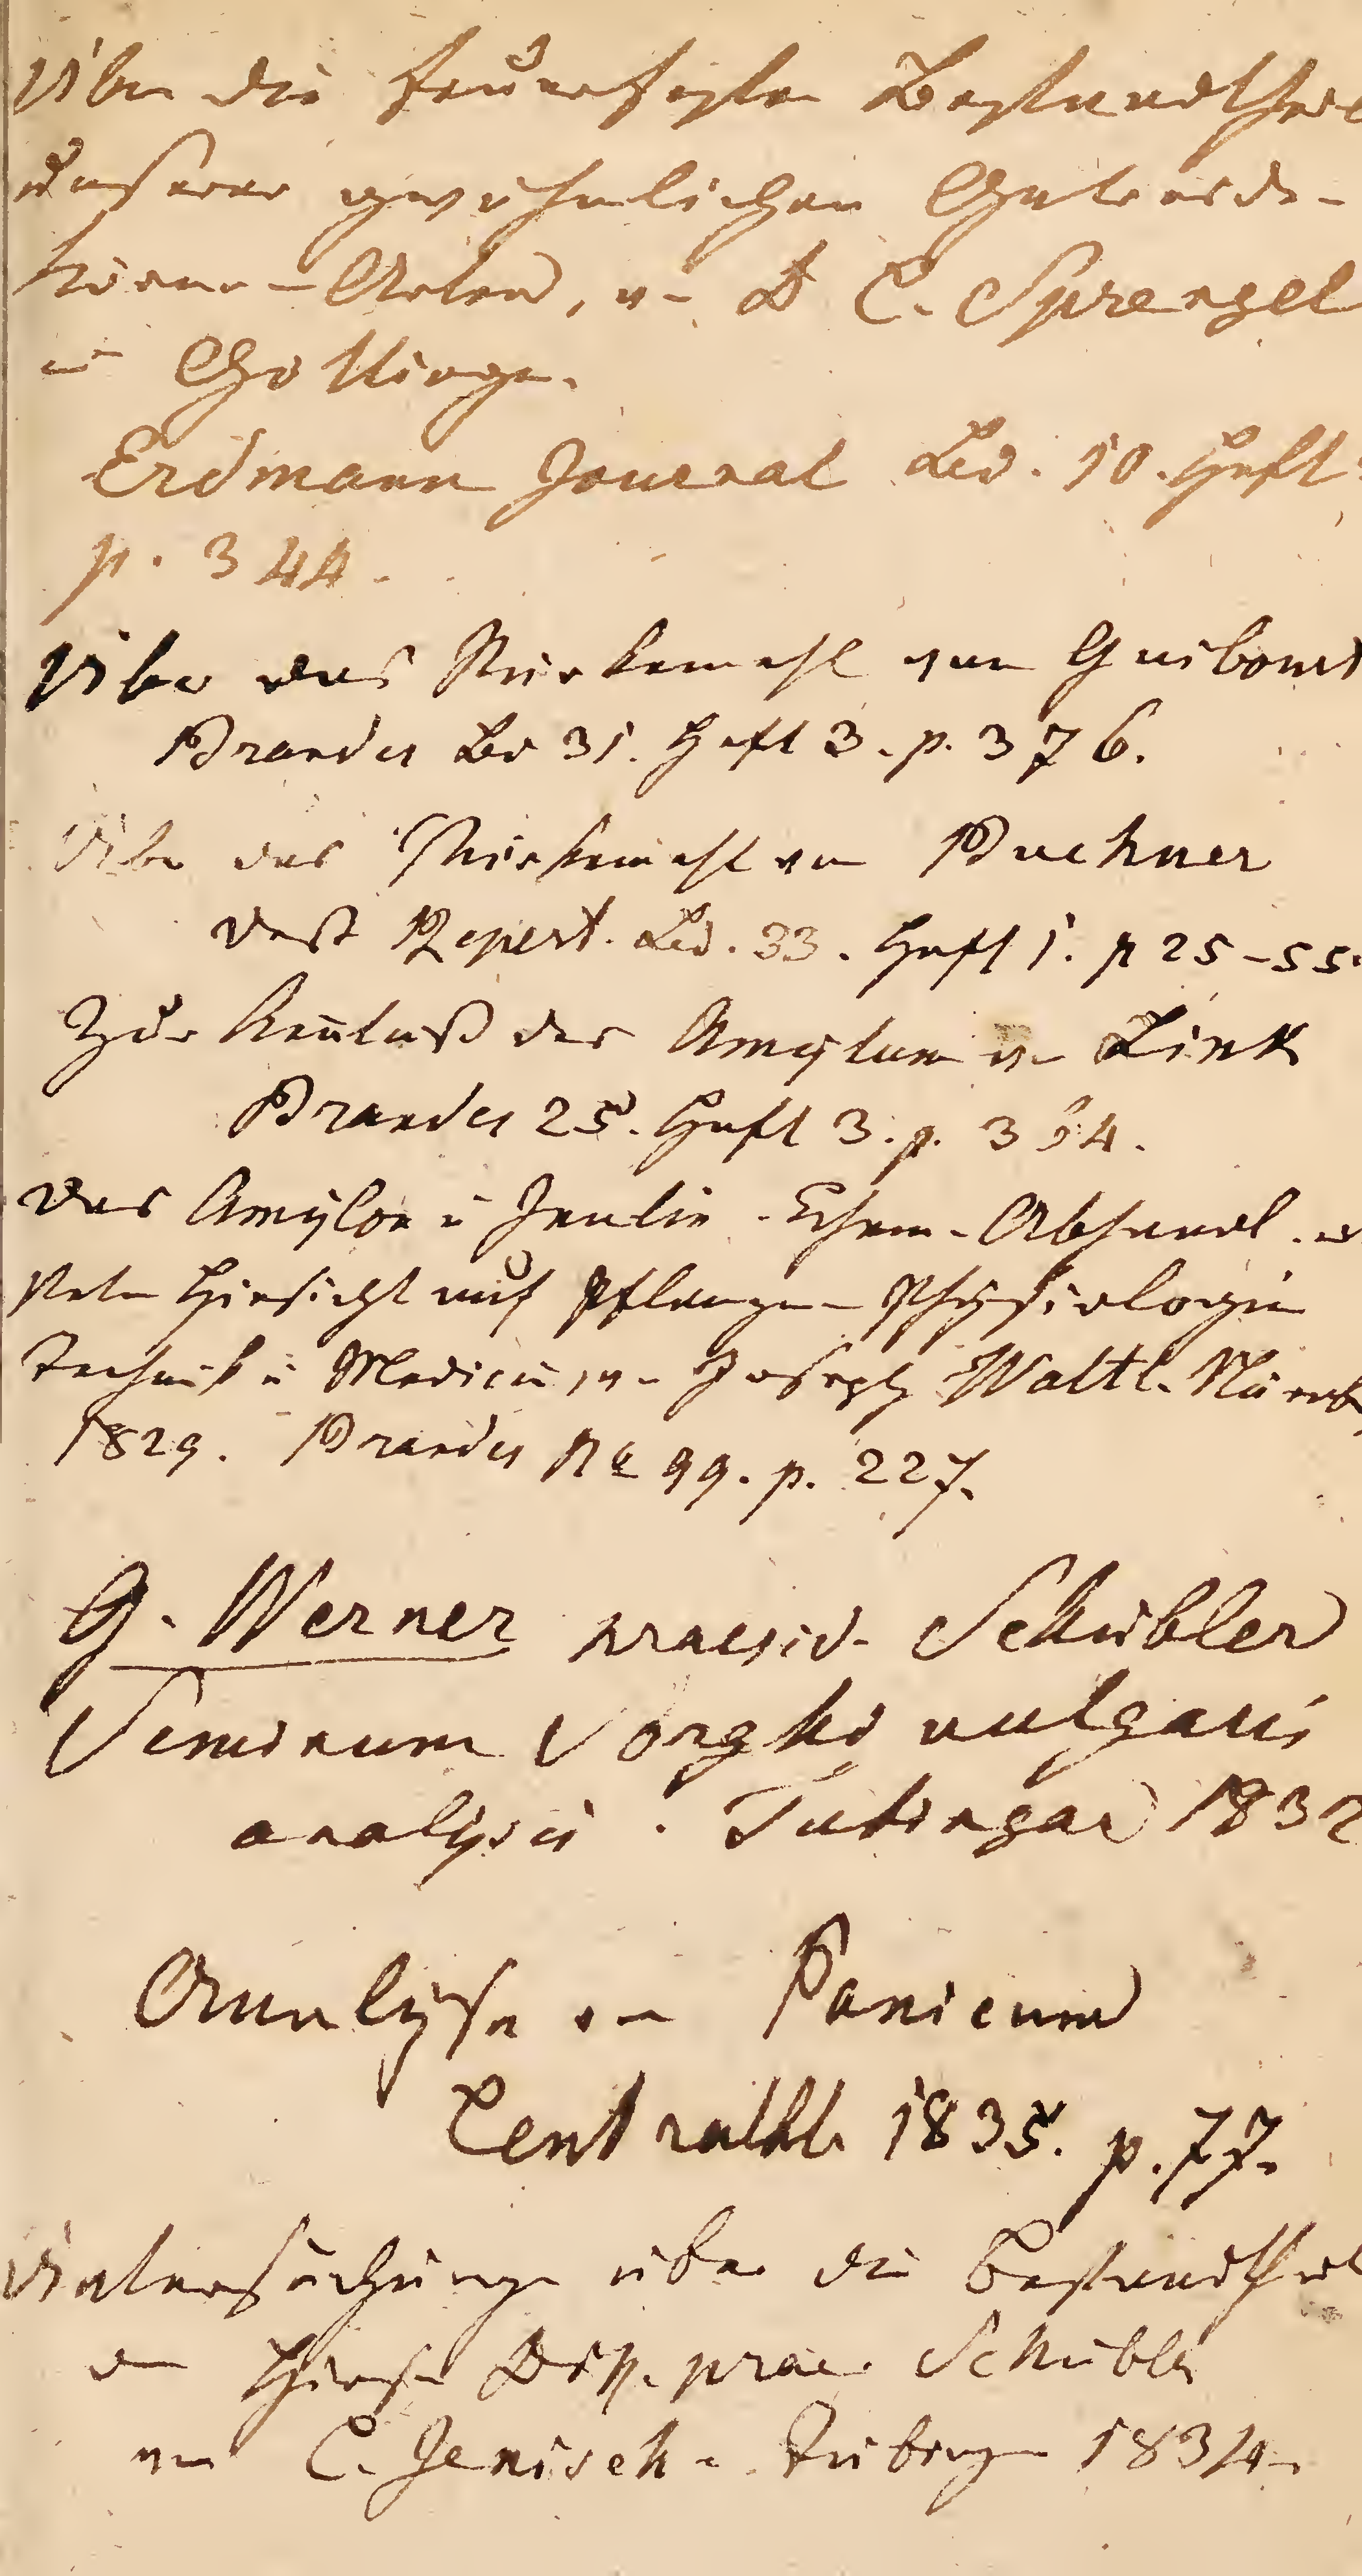 Über die feuerfesten Bestandthei
unserer gewöhnlichen Getreide-
körner-Arten, v. D C. Sprengel
in Gottingen.
Erdmann Journal Bd. 10. Heft
p. 344.
Über das Stärkemehl von Guibourt
Brandes Bd 31. Heft 3. p. 376.
Über das Stärkemehl von Buchner
dess Repert. Bd. 33. Heft 1. p 25-55.
Zur Keñtniß des Amylum v. Link
Brandes 25. Heft 3. p. 314.
Das Amylon u Inulin. Chem. Abhandl.
steter Hinsicht auf Pflanzen-Physiologie
Technik u Medicin, v. Joseph Waltl. Nürnb
1829. Brandes No 99. p. 227.
G. Werner praesid. Schübler
Seminum Sorghi vulgaris
analysis. Tubingae 1832
Analyse von Panicum
Centralbl. 1835. p. 77.
Untersuchungen über die Bestandtheil
der Hirse Diss. prae. Schübler
von C. Jenisch. Tübingen 1834.